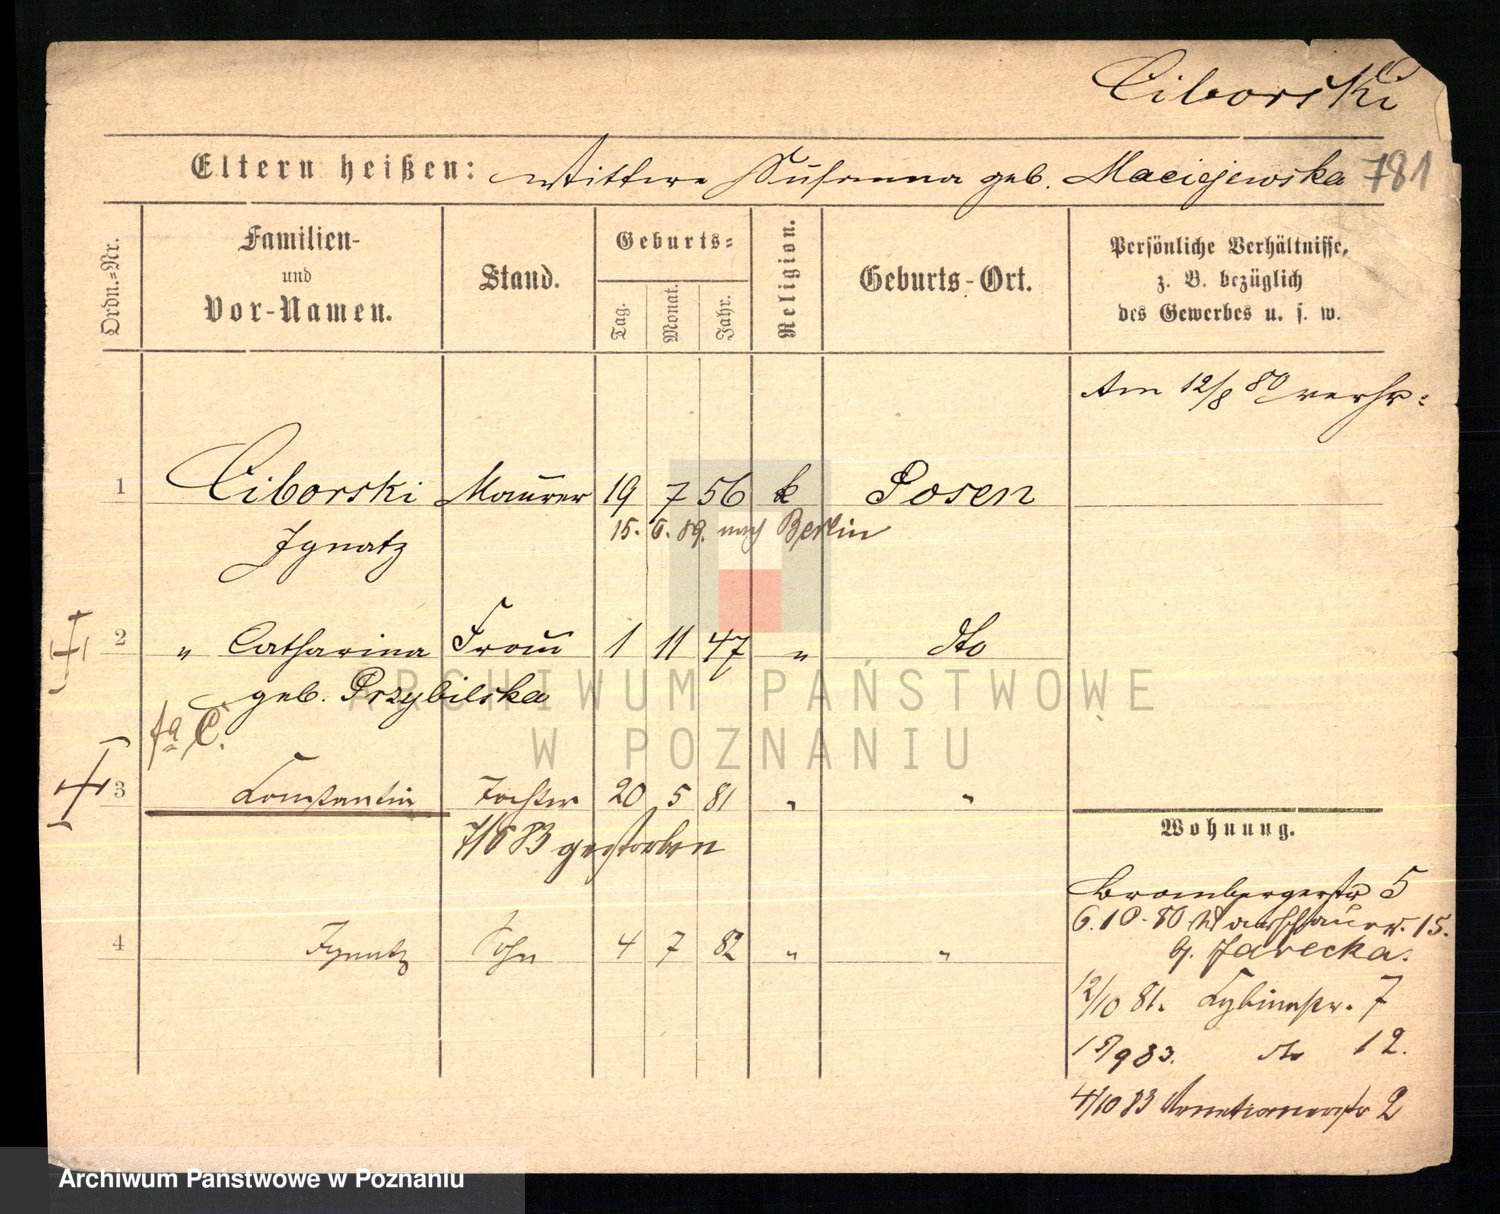 Ciborski
Eltern heißen: Wittwe Susanna geb. Maciejewska 781
Ordn.-Nr.
Familien-
und
Vor-Namen.
Stand.
Geburts-
Tag.
Monat.
Jahr.
Religion.
Geburts-Ort.
Persönliche Verhältnisse,
z. B. bezüglich
des Gewerbes u. s. w.
Am 12/8 80 verhr:
1 Ciborski Maurer 19 7 56 k Posen
Ignatz
15. 6. 89. nach Berlin
2 " Catharina Frau 1 11 47 " dto
geb. Przybilska
fa C.
3 Constantia Tochter 20 5 81 " "
7/6 83 gestorben
4 Ignatz Sohn 4 7 82 " "
Wohnung.
Brombergerstr 5
6. 10. 80 Warschauer. 15.
b. Jarecka.
12/10 81. Lybinastr. 7
15/9 83. dto 12.
4/10 83 Venetianerstr 2
ARCHIWUM PAŃSTWOWE
W POZNANIU
Archiwum Państwowe w Poznaniu